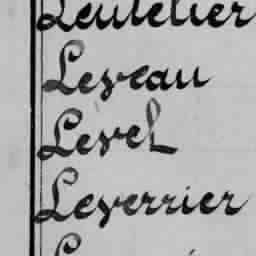 Leutelier
Leveau
Level
Leverrier